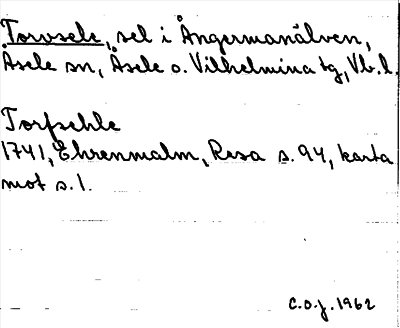 Torvsele, sel i Ångermanälven,
Åsele sn, Åsele o. Vilhelmina tg, Vb. l.
Torfsehle
1741, Ehrenmalm, Resa s. 94, karta
mot s. 1.
C.O.J. 1962